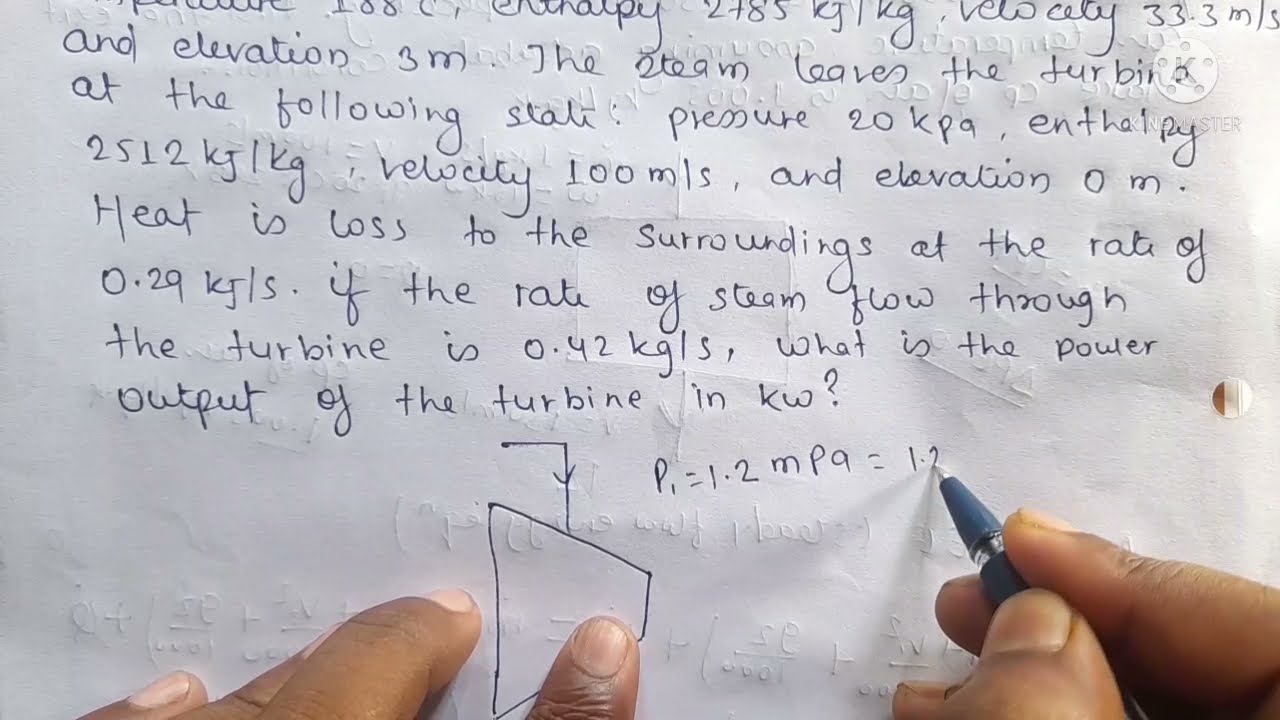 188°c, enthalpy 2785 kJ/kg, velocity 33.3 m/s
and elevation 3m. The steam leaves the turbine
at the following stati: pressure 20 kpa, enthalpy
2512 kJ/kg, velocity 100 m/s, and elevation 0 m.
Heat is loss to the surroundings at the rati of
0.29 kJ/s. if the rati of steam flow through
the turbine is 0.42 kg/s, what is the power
output of the turbine in kw?
P₁ = 1.2 mPa = 1.2
K
KINEMASTER